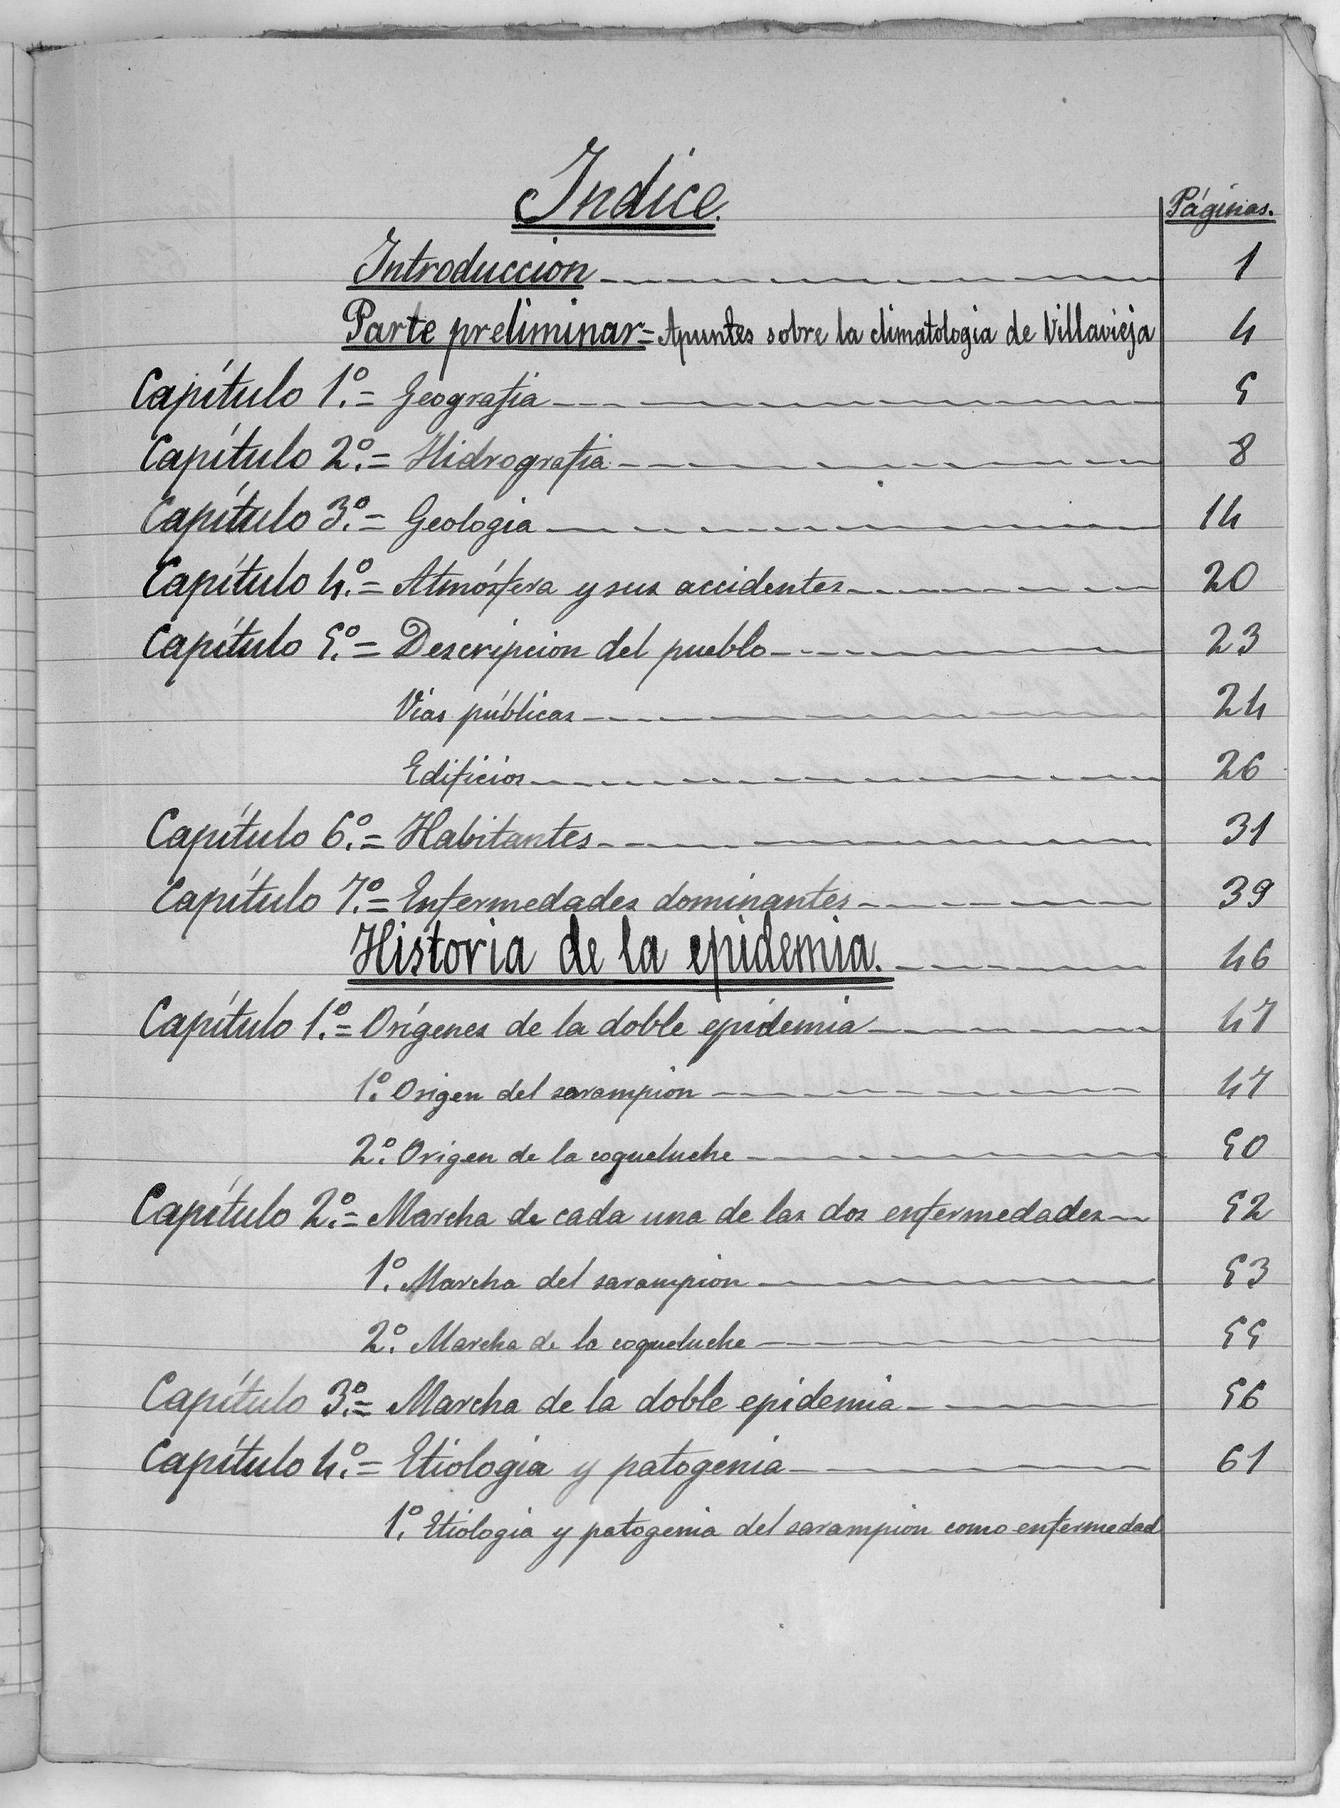 Indice.
Páginas.
Introduccion 1
Parte preliminar = Apuntes sobre la climatologia de Villavieja 4
Capítulo 1.º = Geografia 5
Capítulo 2.º = Hidrografia 8
Capítulo 3.º = Geologia 14
Capítulo 4.º = Atmósfera y sus accidentes 20
Capítulo 5.º = Descripcion del pueblo 23
Vias públicas 24
Edificios 26
Capítulo 6.º = Habitantes 31
Capítulo 7.º = Enfermedades dominantes 39
Historia de la epidemia. 46
Capítulo 1.º = Orígenes de la doble epidemia 47
1.º Origen del sarampion 47
2.º Origen de la coqueluche 50
Capítulo 2.º = Marcha de cada una de las dos enfermedades 52
1.º Marcha del sarampion 53
2.º Marcha de la coqueluche 55
Capítulo 3.º = Marcha de la doble epidemia 56
Capítulo 4.º = Etiologia y patogenia 61
1.º Etiologia y patogenia del sarampion como enfermedad